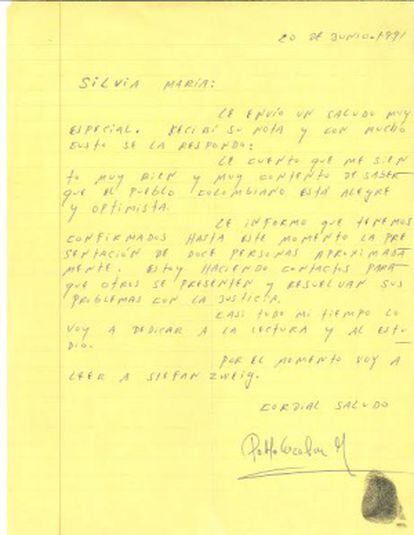 20 DE JUNIO-1991
SILVIA MARIA:
LE ENVIO UN SALUDO MUY
ESPECIAL. RECIBÍ SU NOTA Y CON MUCHO
GUSTO SE LA RESPONDO:
LE CUENTO QUE ME SIEN
TO MUY BIEN Y MUY CONTENTO DE SABER
QUE EL PUEBLO COLOMBIANO ESTÁ ALEGRE
Y OPTIMISTA.
LE INFORMO QUE TENEMOS
CONFIRMADOS HASTA ESTE MOMENTO LA PRE
SENTACIÓN DE DOCE PERSONAS APROXIMADA
MENTE. ESTOY HACIENDO CONTACTOS PARA
QUE OTROS SE PRESENTEN Y RESUELVAN SUS
PROBLEMAS CON LA JUSTICIA.
CASI TODO MI TIEMPO LO
VOY A DEDICAR A LA LECTURA Y AL ESTU
DIO.
POR EL MOMENTO VOY A
LEER A STEFAN ZWEIG.
CORDIAL SALUDO
Pablo Escobar